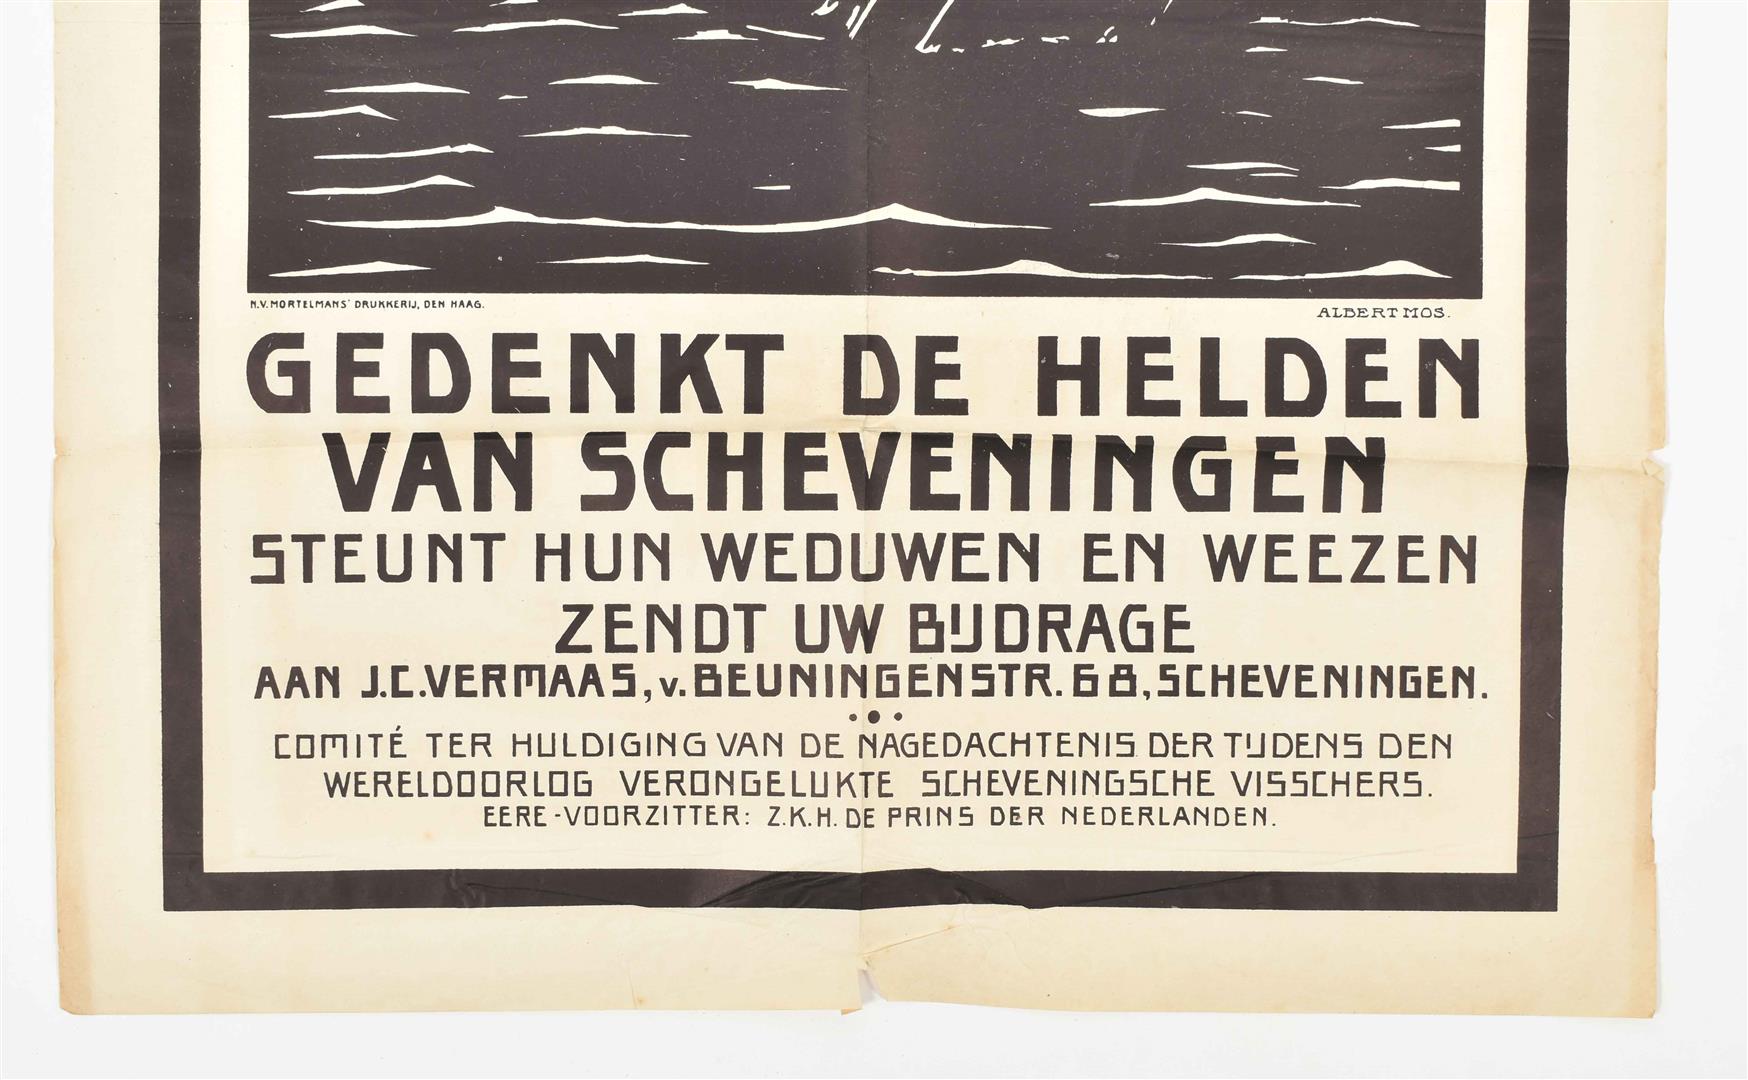 N.V. MORTELMANS' DRUKKERIJ, DEN HAAG.
ALBERT MOS.
GEDENKT DE HELDEN
VAN SCHEVENINGEN
STEUNT HUN WEDUWEN EN WEEZEN
ZENDT UW BIJDRAGE
AAN J.C. VERMAAS, v. BEUNINGENSTR. 68, SCHEVENINGEN.
COMITÉ TER HULDIGING VAN DE NAGEDACHTENIS DER TIJDENS DEN
WERELDOORLOG VERONGELUKTE SCHEVENINGSCHE VISSCHERS.
EERE-VOORZITTER: Z.K.H. DE PRINS DER NEDERLANDEN.